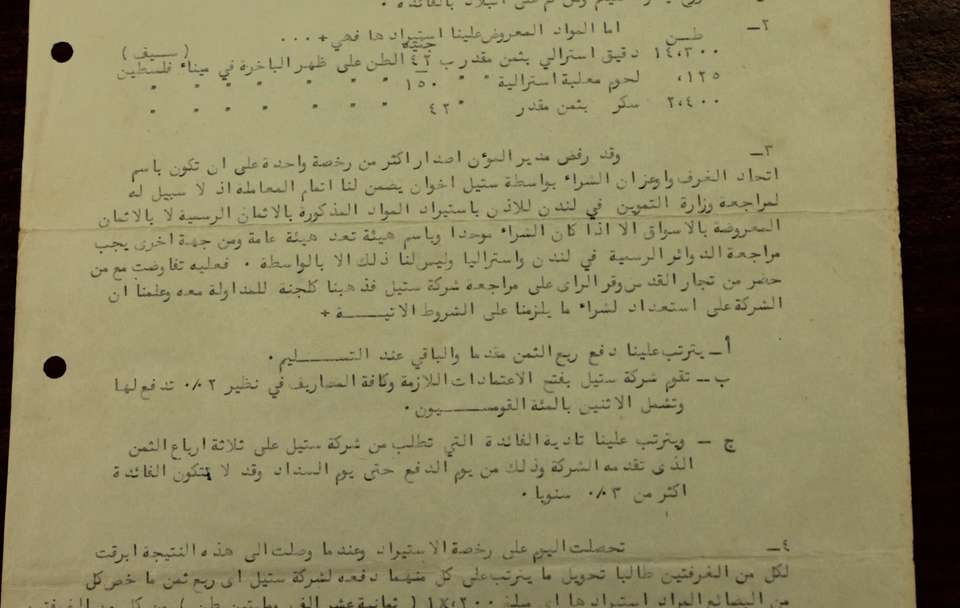 على البلاد بالفائدة .
٢ــ اما المواد المعروض علينا استيرادها فهي + . . .
طـــن جنيه ( ســـيف )
١٤،٣٠٠ دقيق استرالي بثمن مقدر ب ٤٢ الطن على ظهر الباخرة في ميناء فلسطين
١٢٥، لحوم معلبة استرالية " " ١٥٠ " " " " " " "
٢،٤٠٠ سكر بثمن مقدر " ٤٢ " " " " " " "
٣ــ وقد رفض مدير المؤن اصدار اكثر من رخصة واحدة على ان تكون باسم
اتحاد الغرف واوعز ان الشراء بواسطة ستيل اخوان يضمن لنا اتمام المعاملة اذ لا سبيل له
لمراجعة وزارة التموين في لندن للاذن باستيراد المواد المذكورة بالاثمان الرسمية لا بالاثمان
المعروضة بالاسواق الا اذا كان الشراء موحدا وباسم هيئة تعد هيئة عامة ومن جهة اخرى يجب
مراجعة الدوائر الرسمية في لندن واستراليا وليس لنا ذلك الا بالواسطة . فعليه تفاوضت مع من
حضر من تجار القدس وقر الراى على مراجعة شركة ستيل فذهبنا كلجنة للمداولة معه وعلمنا ان
الشركة على استعداد لشراء ما يلزمنا على الشروط الاتيـــــــة +
أــ يترتب علينا دفع ربع الثمن مقدما والباقي عند التســـــــليم .
ب ــ تقوم شركة ستيل بفتح الاعتمادات اللازمة وكافة المصاريف في نظير ٢٪ تدفع لها
وتشمل الاثنين بالمئة القومســـــــيون .
ج ــ ويترتب علينا تادية الفائدة التي تطلب من شركة ستيل على ثلاثة ارباع الثمن
الذى تقدمه الشركة وذلك من يوم الدفع حتى يوم السداد وقد لا تتكون الفائدة
اكثر من ٣٪ سنويا .
٤ــ تحصلت اليوم على رخصة الاستيراد وعندما وصلت الى هذه النتيجة ابرقت
لكل من الغرفتين طالبا تحويل ما يترتب على كل منهما دفعه لشركة ستيل اى ربع ثمن ما خص كل
من البضائع المراد استيرادها اى مبلغ ١٨،٢٠٠ ( ثمانية عشر الف ومايتين طن ) من كل من الغرفتين